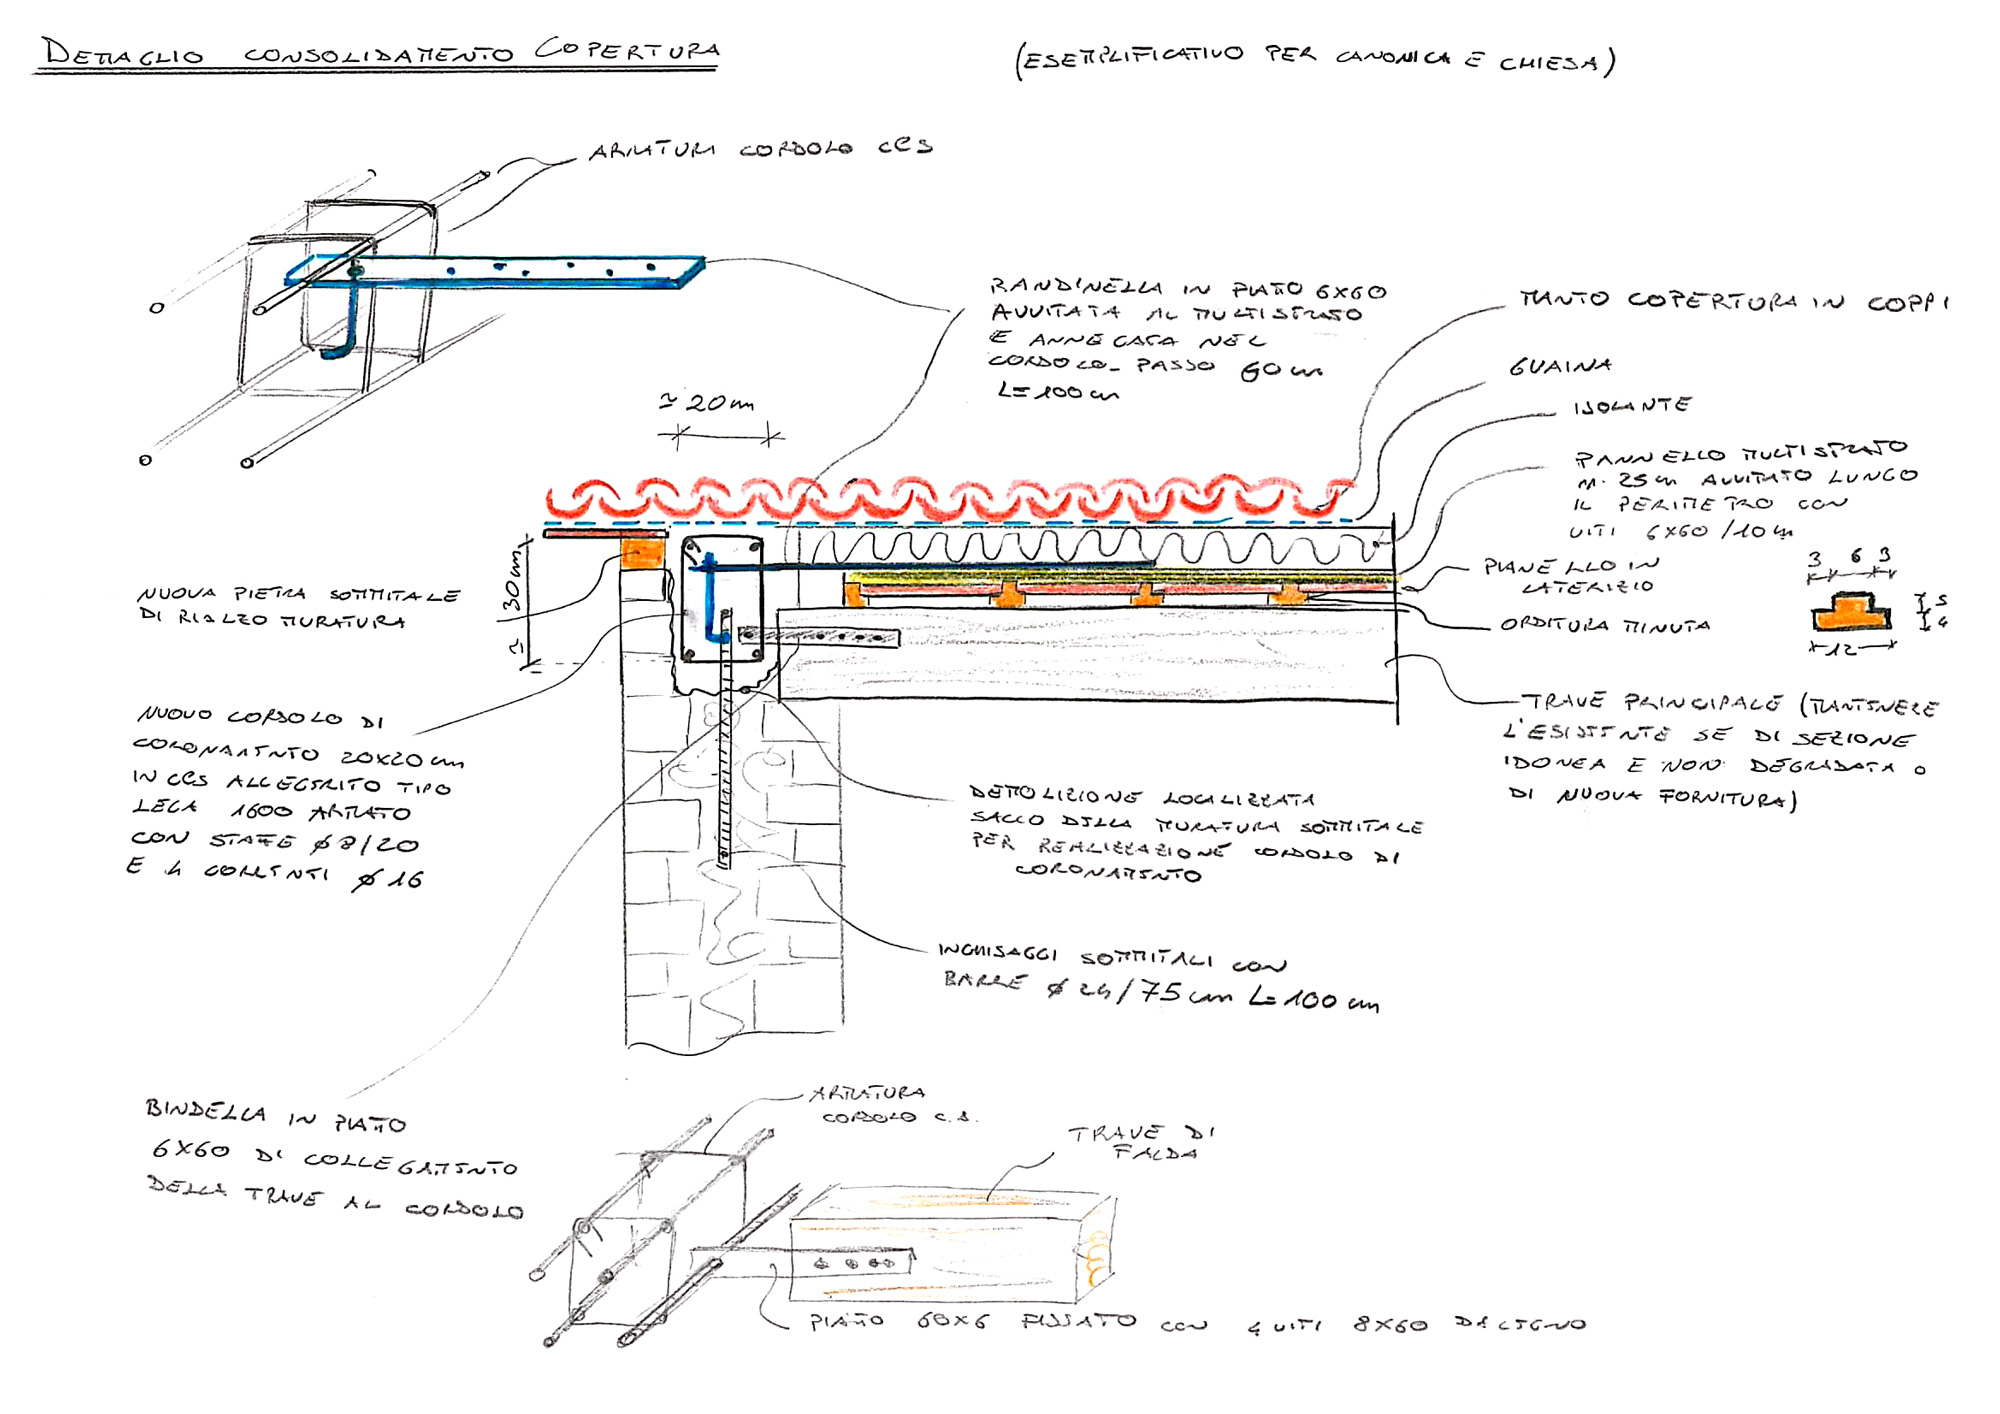 DETTAGLIO CONSOLIDAMENTO COPERTURA
(ESEMPLIFICATIVO PER CANONICA E CHIESA)
ARMATURA CORDOLO CLS
BANDINELLA IN PIATTO 6X60
AVVITATA AL MULTISTRATO
E ANNEGATA NEL
CORDOLO - PASSO 60 cm
L=100 cm
MANTO COPERTURA IN COPPI
GUAINA
ISOLANTE
PANNELLO MULTISTRATO
25 AVVITATO LUNGO
IL PERIMETRO CON
VITI 6X60/10 cm
≃ 20 cm
≃ 30 cm
PIANELLO IN
LATERIZIO
ORDITURA MINUTA
3 6 3
5
4
12
NUOVA PIETRA SOMMITALE
DI RIALZO MURATURA
TRAVE PRINCIPALE (MANTENERE
L'ESISTENTE SE DI SEZIONE
IDONEA E NON DEGRADATA O
DI NUOVA FORNITURA)
NUOVO CORDOLO DI
CORONAMENTO 20X20 cm
IN CLS ALLEGERITO TIPO
LECA 1600 ARMATO
CON STAFFE Ø8/20
E 4 CORRENTI Ø16
DEMOLIZIONE LOCALIZZATA
SACCO DELLA MURATURA SOMMITALE
PER REALIZZAZIONE CORDOLO DI
CORONAMENTO
INGHISAGGI SOMMITALI CON
BARRE Ø24/75 cm L=100 cm
BINDELLA IN PIATTO
6X60 DI COLLEGAMENTO
DELLA TRAVE AL CORDOLO
ARMATURA
CORDOLO C.A.
TRAVE DI
FALDA
PIATTO 60X6 FISSATO CON 4 VITI 8X60 DA LEGNO